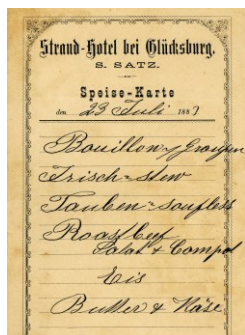 Strand-Hotel bei Glücksburg.
S. SATZ.
Speise-Karte
den 23 Juli 188
Bouillon
Irisch-stew
Tauben-soufless
Roastbeef
Salat & Compot
Eis
Butter & Käse